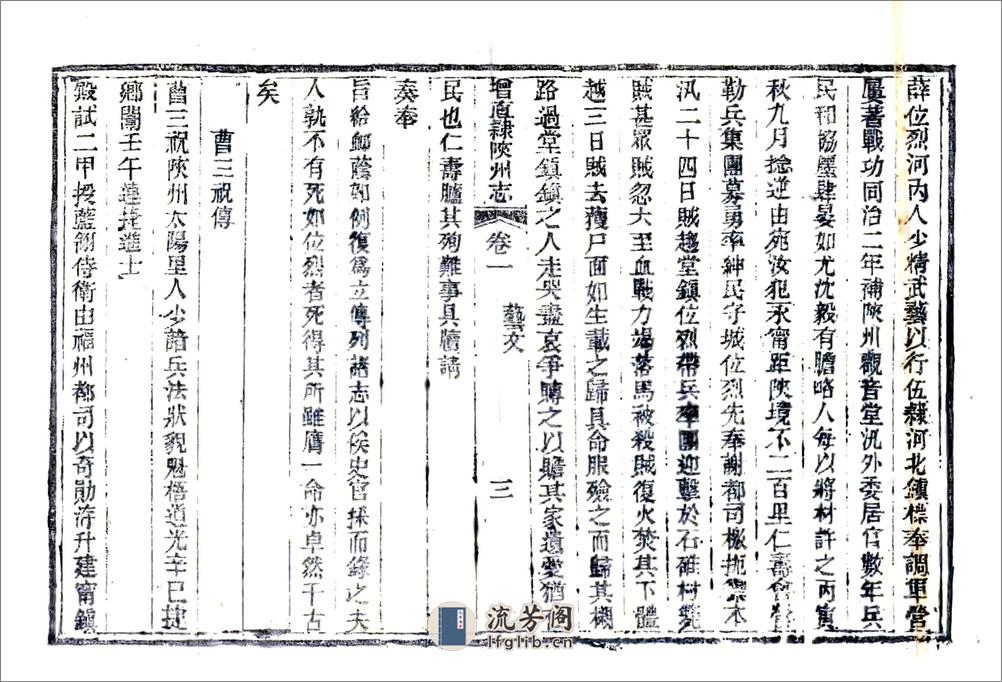 薛位烈河內人少精武藝以行伍隸河北鎮標奉調軍營
屢著戰功同治二年補陝州觀音堂汛外委居官數年兵
民和協廛肆晏如尤沈毅有膽略人每以將材許之丙寅
秋九月捻逆由宛汝犯永甯距陝境不二百里仁壽會營
勒兵集團募勇率紳民守城位烈先奉謝都司檄扼禦本
汛二十四日賊趨堂鎮位烈帶兵率團迎擊於石碓村斃
賊甚眾賊忽大至血戰力竭落馬被殺賊復火焚其下體
越三日賊去獲尸面如生載之歸具命服殮之而歸其櫬
路過堂鎮鎮之人走哭盡哀爭賻之以贍其家遺愛猶在
增直隸陝州志 卷一 藝文 三
民也仁壽臚其殉難事具牘請
奏奉
旨給卹蔭如例復為立傳列諸志以俟史官採而錄之夫
人孰不有死如位烈者死得其所雖膺一命亦卓然千古
矣
曹三祝傳
曹三祝陝州太陽里人少諳兵法狀貌魁梧道光辛巳捷
鄉闈壬午連捷進士
殿試二甲授藍翎侍衛由福州都司以奇勛洊升建甯鎮
流芳阁
lfglib.cn